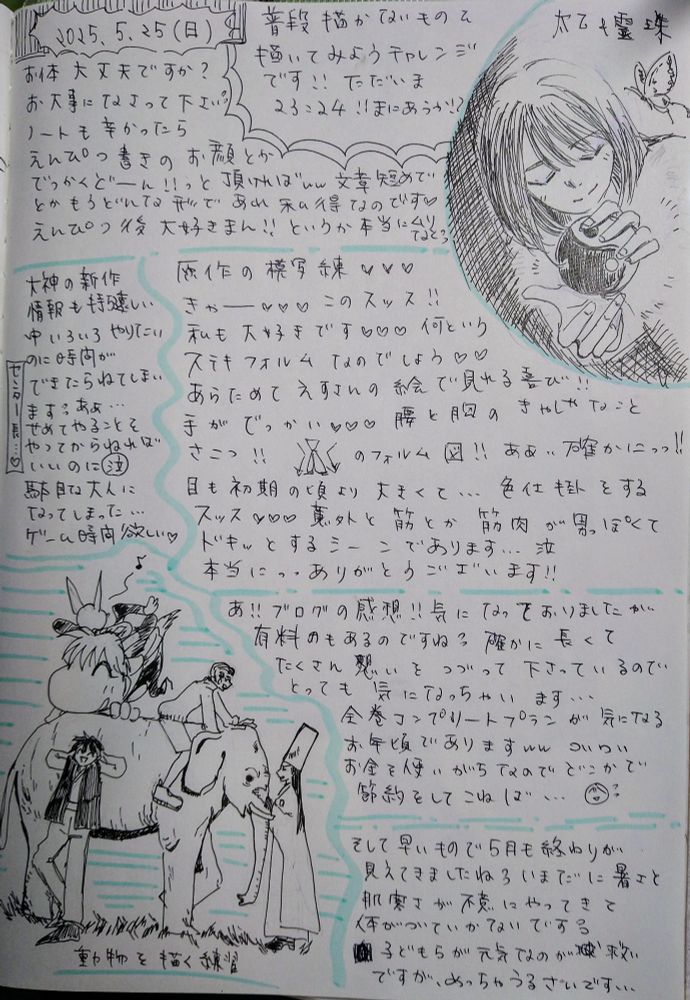 2025.5.25(日)
お体 大丈夫ですか?
お大事になさって下さい
ノートも辛かったら
えんぴつ書きの お顔とか
でっかくどーん!!っと 頂ければww 文章短めで
とか もうどんな形であれ 私得なのです♡
えんぴつ後 大好きまん!!というか本当にムリ
なさらず
普段描かないものを
描いてみようチャレンジ
です!! ただいま
23:24 !!まにあうか!?
太乙と霊珠
大神の新作
情報も待ち遠しい
中いろいろやりたい
のに時間が
できたらねてしまい
ます。あぁ…
せめてやることを
やってからねれば
いいのに 泣
駄目な大人に
なってしまった…
ゲーム時間欲しい♡
センター長…♡
原作の模写練 ♡♡♡
きゃー♡♡♡ このスッス!!
私も大好きです♡♡♡ 何という
ステキフォルム なのでしょう♡♡
あらためて えすさんの 絵で見れる喜び!!
手が でっかい♡♡♡ 腰と胸の きゃしゃなこと
さこつ!! のフォルム図!! あぁ…確かにっっ!!
目も初期の頃より 大きくて… 色仕掛をする
スッス♡♡♡ 意外と 筋とか 筋肉が男っぽくて
ドキッとするシーンであります… 泣
本当にっっありがとうございます!!
あ!! ブログの感想!! 気になっておりましたが
有料のもあるのですね? 確かに 長くて
たくさん 想いを つづって 下さっているので
とっても 気になっちゃいます…
全巻コンプリートプランが 気になる
お年頃でありますww ついつい
お金を使いがちなのでどこかで
節約をしてこねば…
そして早いもので5月も終わりが
見えてきましたね いまだに暑さと
肌寒さが交互にやってきて
体がついていかないです
子どもらが元気なのが救い
ですが、めっちゃうるさいです…
動物を描く練習